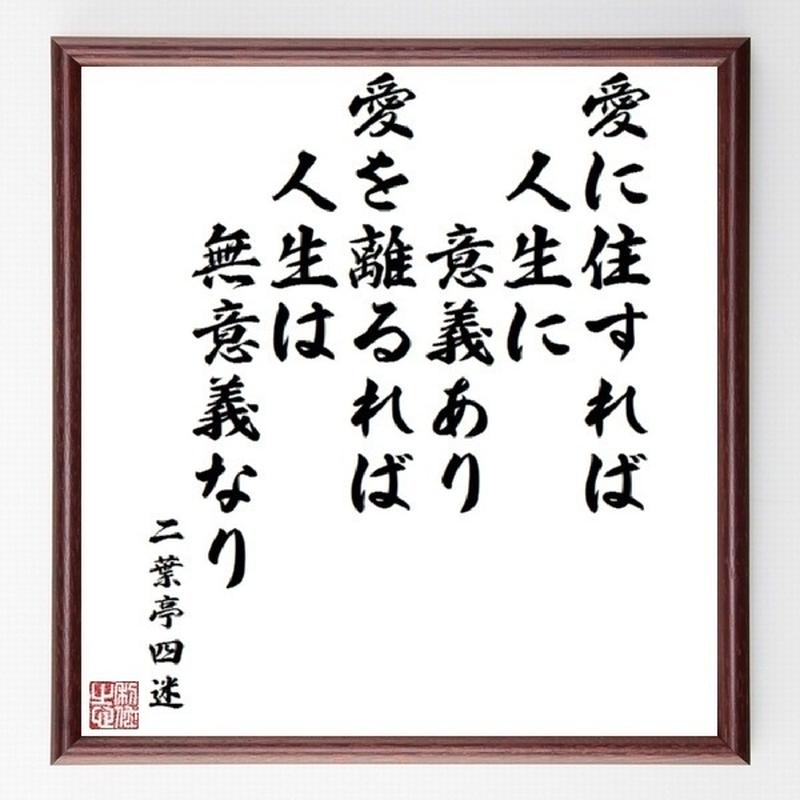 愛に住すれば
人生に
意義あり
愛を離るれば
人生は
無意義なり
二葉亭四迷